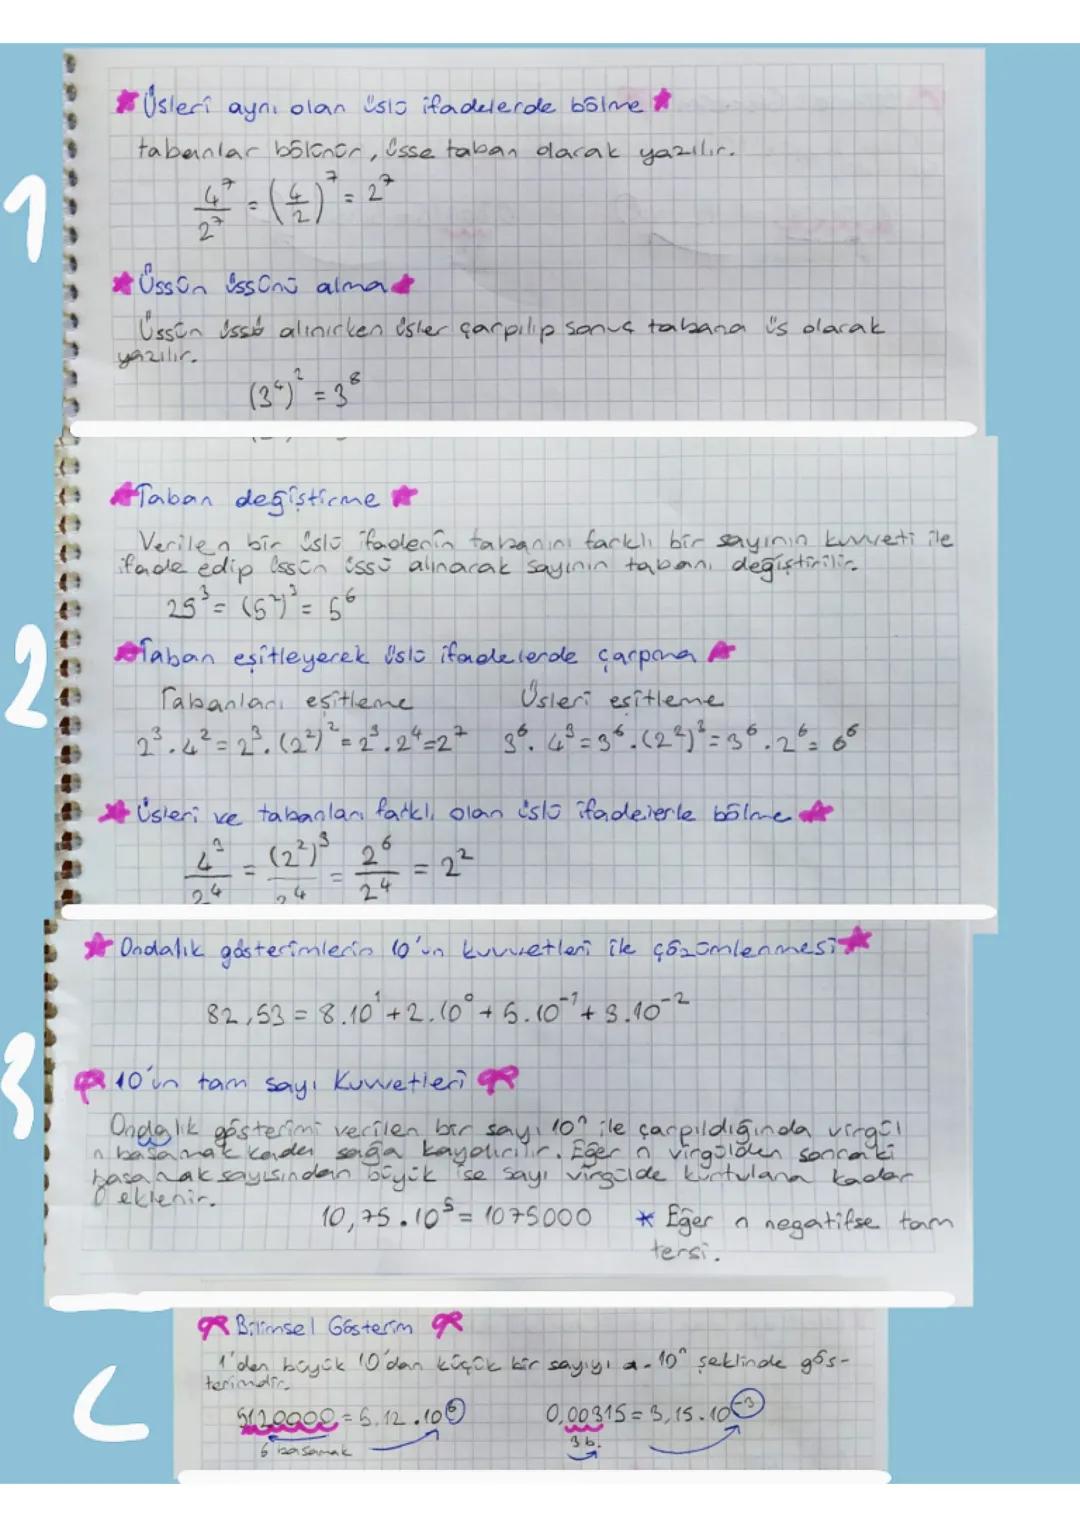 Üsleri aynı olan üslü ifadelerde bölme
tabanlar bölünür, üsse taban olarak yazılır.
4⁷/2⁷ = (4/2)⁷ = 2⁷
1
Üssün üssünü alma
Üssün üssü alınırken üsler çarpılıp sonuç tabana üs olarak
yazılır.
(3⁴)² = 3⁸
Taban değiştirme
Verilen bir üslü ifadenin tabanını farklı bir sayının kuvveti ile
ifade edip üssün üssü alınarak sayının tabanı değiştirilir.
25³ = (5²)³ = 5⁶
2
Taban eşitleyerek üslü ifadelerde çarpma
Tabanları eşitleme Üsleri eşitleme
2³.4² = 2³.(2²)² = 2³.2⁴=2⁷ 3⁶.4³=3⁶.(2²)³=3⁶.2⁶=6⁶
Üsleri ve tabanları farklı olan üslü ifadelerle bölme
4³/2⁴ = (2²)³/2⁴ = 2⁶/2⁴ = 2²
Ondalık gösterimlerin 10'un kuvvetleri ile çözümlenmesi
82,53 = 8.10¹+2.10⁰+5.10⁻¹+3.10⁻²
3
10'un tam sayı kuvvetleri
Ondalık gösterimi verilen bir sayı 10ⁿ ile çarpıldığında virgül
n basamak kadar sağa kaydırılır. Eğer n virgülden sonraki
basamak sayısından büyük ise sayı virgülde kurtulana kadar
0 eklenir.
10,75.10⁵ = 1075000 * Eğer n negatifse tam
tersi.
Bilimsel Gösterim
1'den büyük 10'dan küçük bir sayıyı a.10ⁿ şeklinde gös-
terimdir.
5120000 = 5,12.10⁶ 0,00315 = 3,15.10⁻³
6 basamak 3 b.